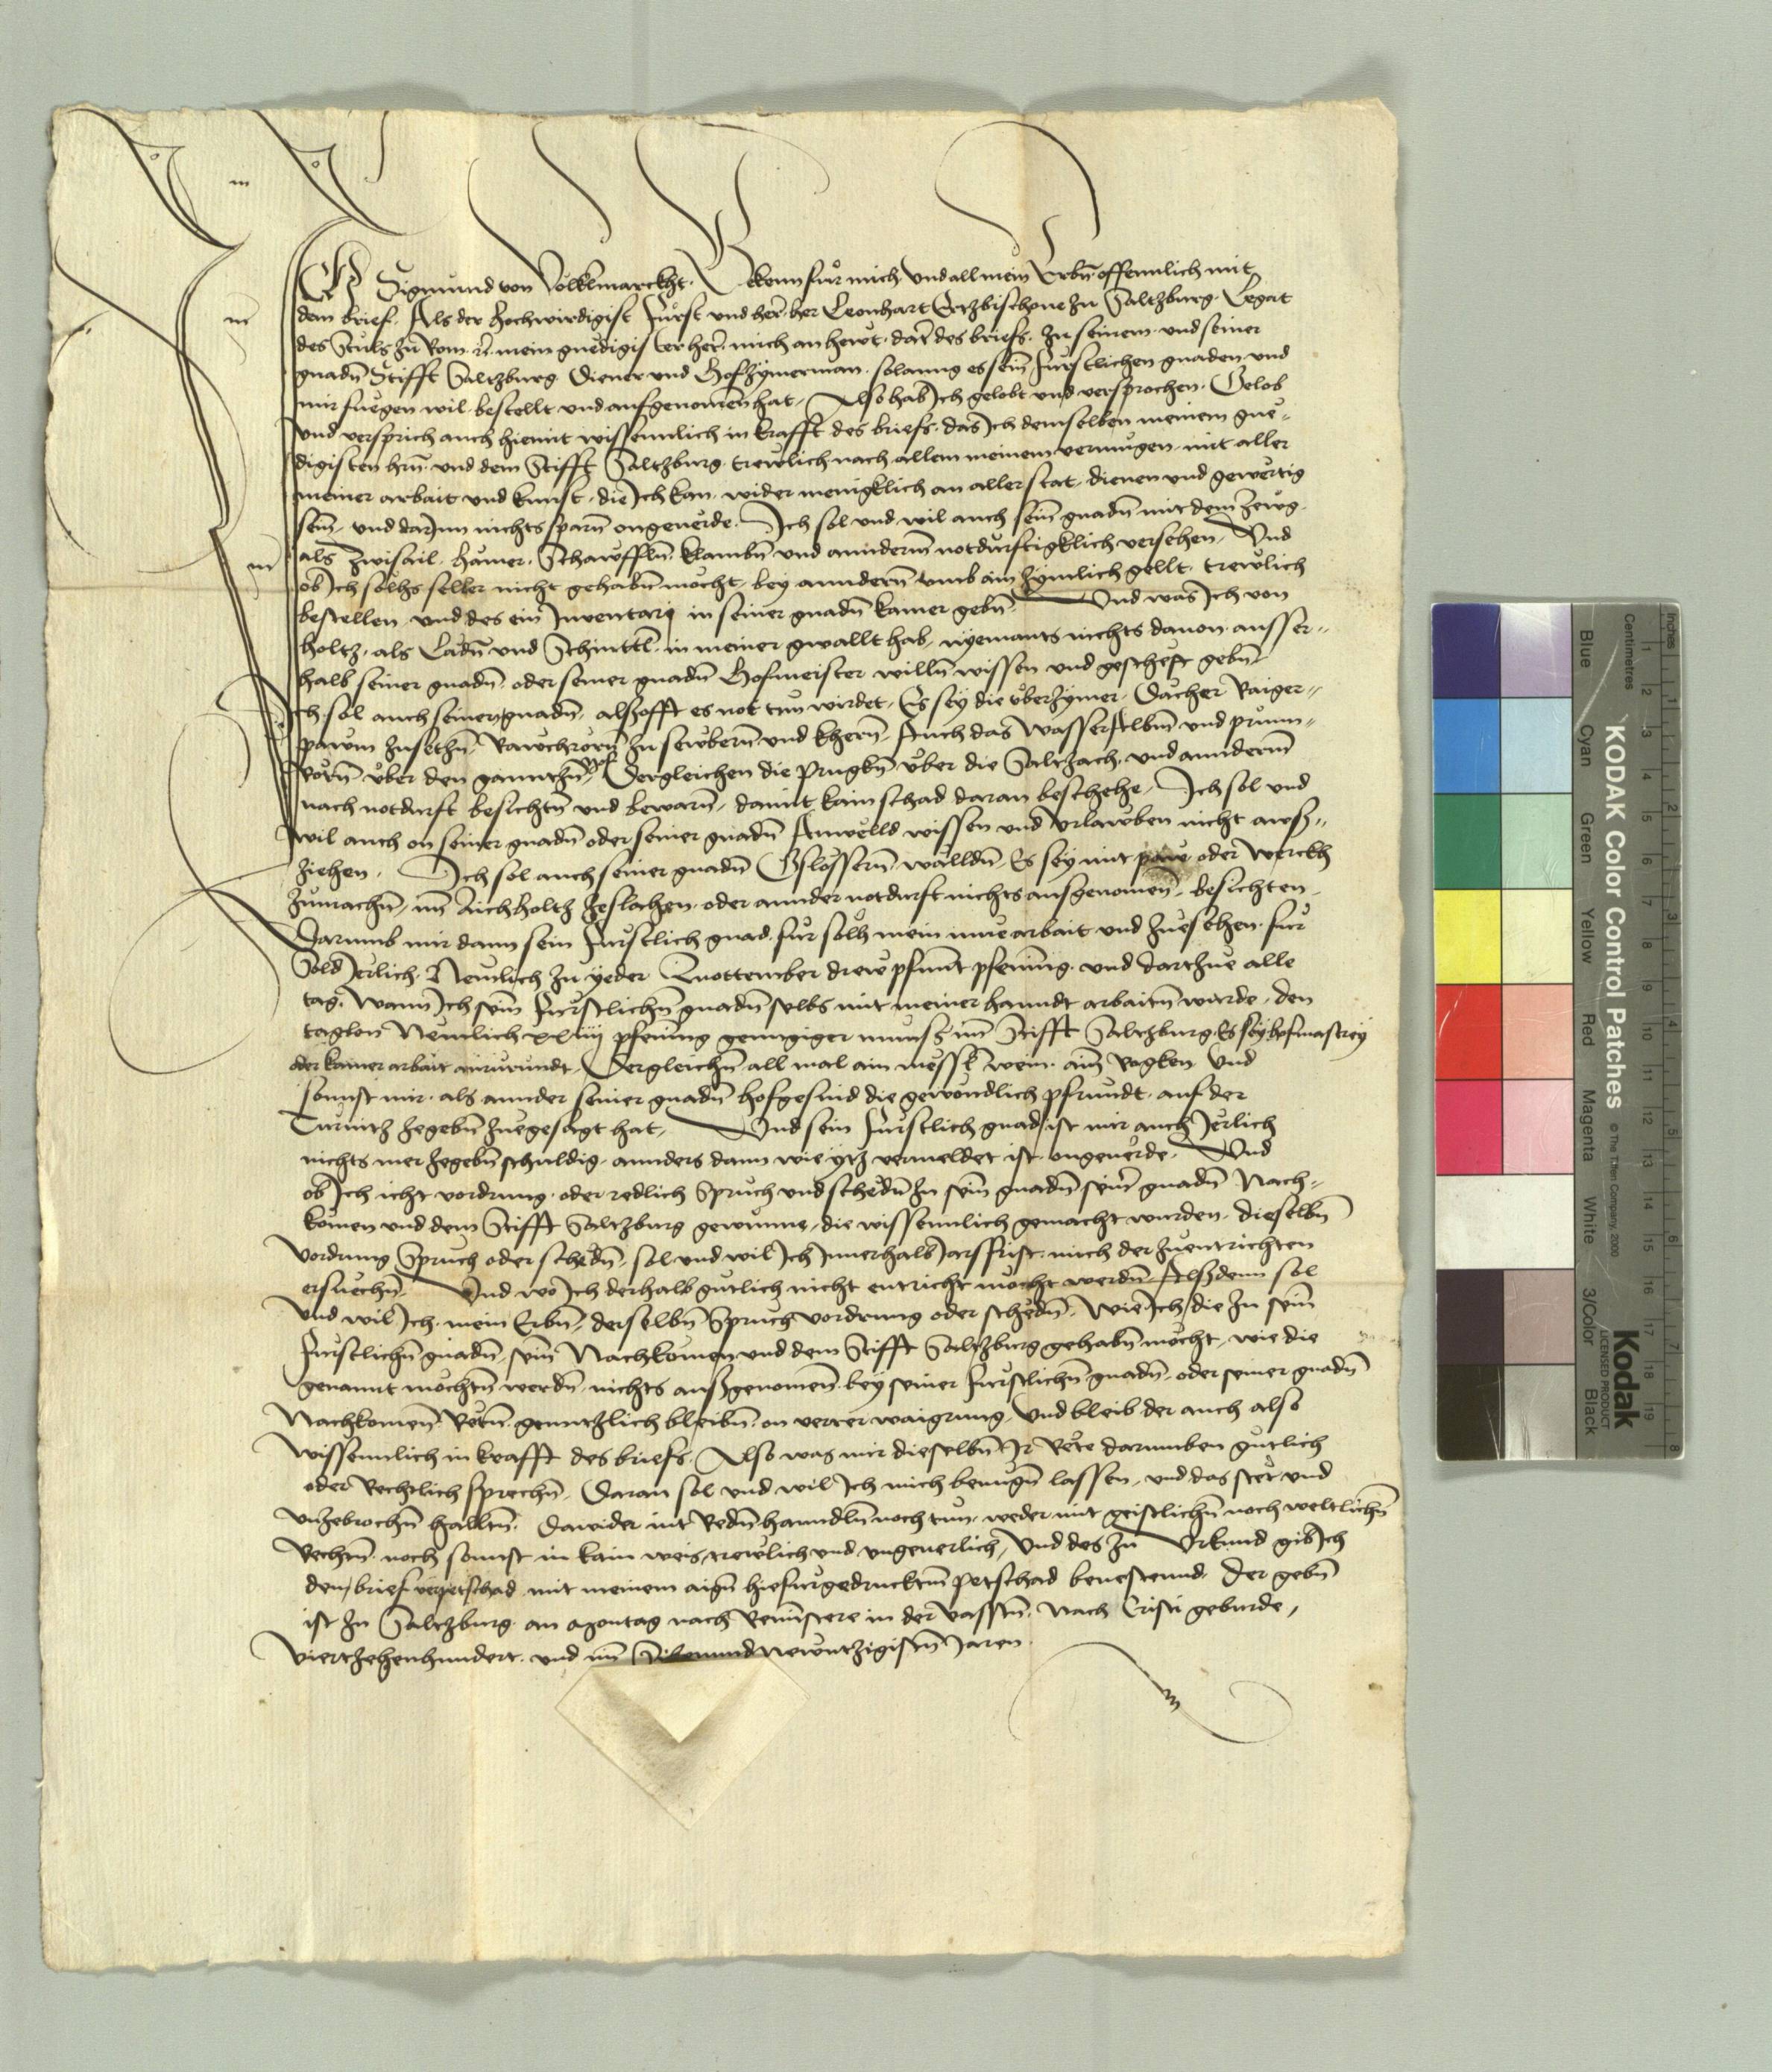 Ich Sigmund von Volklmarckht. Bekenn fur mich und all mein Erbn offennlich mit
dem brief. Als der Hochwirdigist Furst und her her Leonhart Ertzbischoue zu Saltzburg. Legat
des Stuls zu Rom ꝛc. mein gnedigister her. mich an hewt. dat des briefs. zu seinem und seiner
gnadn Stifft Saltzburg Diener und Hofzymerman. solanng es sein Furstlichen gnaden und
mir fuegen wil. bestellt und aufgenomen hat. Also hab Ich gelobt und versprochen. Gelob
und versprich auch hiemit wissenntlich in krafft des briefs. das Ich demselben meinem gne-
digisten hrn. und dem Stifft Saltzburg. trewlich nach allem meinem vermugen. mit aller
meiner arbait und kunst. die Ich kan. wider menigklich an aller stat. dienen und gewertig
sein. und darInn nichts sparn ongeuerde. Ich sol und wil auch sein gnadn mit dem zewg.
als zwisail. hamer. Schauffln. klambn und anndernn notdurftigklich versehen. Und
ob Ich solhs selber nicht gehabn mocht. bey anndern umb ain zymlich gellt. trewlich
bestellen. und des ein Inventarj in seiner gnadn kamer gebn. Und was Ich von
holtz. als Ladn und Schinttl. in meiner gwallt hab. nyemants nichts dauon. ausser-
halb seiner gnadn. oder seiner gnadn Hofmeister willn wissen und gescheft gebn
Ich sol auch seinen gnadn. alsofft es not tun wirdet. Es sey die uberzymer. Dacher Raiger-
pawm zusetzn. Rauchrorn zu sewbern und khern. Auch das wasser Albm und prunn-
Rorn uber den ganntzn Hof Dergleichen die Prugkn uber die Saltzach. und anndernn
nach notdurft besichtn und bewarn. damit kain schad daran beschehe. Ich sol und
wil auch on seiner gnadn oder seiner gnadn Anwelld wissen und urlawben nicht awss-
ziehen. Ich sol auch seiner gnadn Gslossern. walldn. Es sey mit paw oder werckh
zumachn. im Aichholtz zeslahen. oder annder notdurft nichts ausgenomen. besichten.
Darumb mir dann sein Furstlich gnad. fur solh mein mue arbait und zuesehen. fur
Sold Jerlich. Nemlich zu yeder Quottember drew pfunt pfening. und dartzue alle
tag. Wann Ich sein Furstlichn gnadn selbs mit meiner hanndt arbaitn wurde. den
taglon Nemlich xxiiij pfening genngiger munss im Stifft Saltzburg. Es sey hofmaistrey
oder kamer arbait Dergleichn all mal ain messl wein. ain Rogken Und
sonnst mir. als annder seiner gnadn hofgesind die gewondlich pfrundt. auf der
Turnitz zegebn zuegesagt hat. Und sein Furstlich gnad ist mir auch Jerlich
nichts mer zegebn schuldig. annders dann wie ytz vermeldet ist. ongeuerde. Und
ob Ich icht vordrung. oder redlich Spruch und schedn zu sein gnadn seinr gnadn Nach-
komen und dem Stifft Saltzburg gewunne. die wissenntlich gemacht wurden. dieselbn
vordrung Spruch oder schedn. sol und wil Ich Innerhalb Jarssfrist. mich der zuentrichten
ersuechn. Und wo Ich derhalb gutlich nicht entricht mocht werdn. Alssdenn sol
und wil Ich. mein Erbn. derselbn Spruch vordrung oder schedn. Wie Ich die zu sein
Furstlichn gnadn. sein Nachkomen und dem Stifft Saltzburg gehabn mocht. wie die
genannt mochtn werdn. nichts aussgenomen. bey seiner Furstlichn gnadn. oder seiner gnadn
Nachkomen Retn. genntzlich bleibn. on verrer waigrung. Und bleib der auch also
wissenntlich in krafft des briefs. Also was mir dieselbn Ir Rete darumben gutlich
oder Rechtlich sprechn. Daran sol und wil Ich mich benugn lassen. und das stet und
unzebrochn halltn. Dawider nit Redn hanndln noch tun. weder mit geistlichn noch weltlichn
Rechtn. noch sonnst in kain weis. trewlich und ungeuerlich. Und des zu Urkund gib Ich
den brief verpetschad mit meinem aign hiefurgedrucktm petschad beuestennd. Der gebn
ist zu Saltzburg. an Montag nach Reminiscere in der vasstn. Nach Cristi geburde.
Viertzehenhundert. und im Sibenundnewntzigistn Jaren.
KODAK Color Control Patches
© The Tiffen Company, 2000
Kodak
LICENSED PRODUCT
Blue Cyan Green Yellow Red Magenta White 3/Color Black
Centimetres 1 2 3 4 5 6 7 8 9 10 11 12 13 14 15 16 17 18 19
Inches 1 2 3 4 5 6 7 8